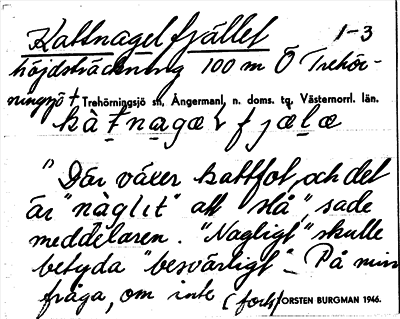 Kattnagelfjället 1-3
höjdsträckning 100 m Ö Trehör-
ningsjö t Trehörningsjö sn, Ångermanl. n. doms. tg, Västernorrl. län.
"Där växer kattfot, och det
är "nàglit" att slå", sade
meddelaren. "Nagligt" skulle
betyda "besvärligt". På min
fråga, om inte (forts) TORSTEN BURGMAN 1946.